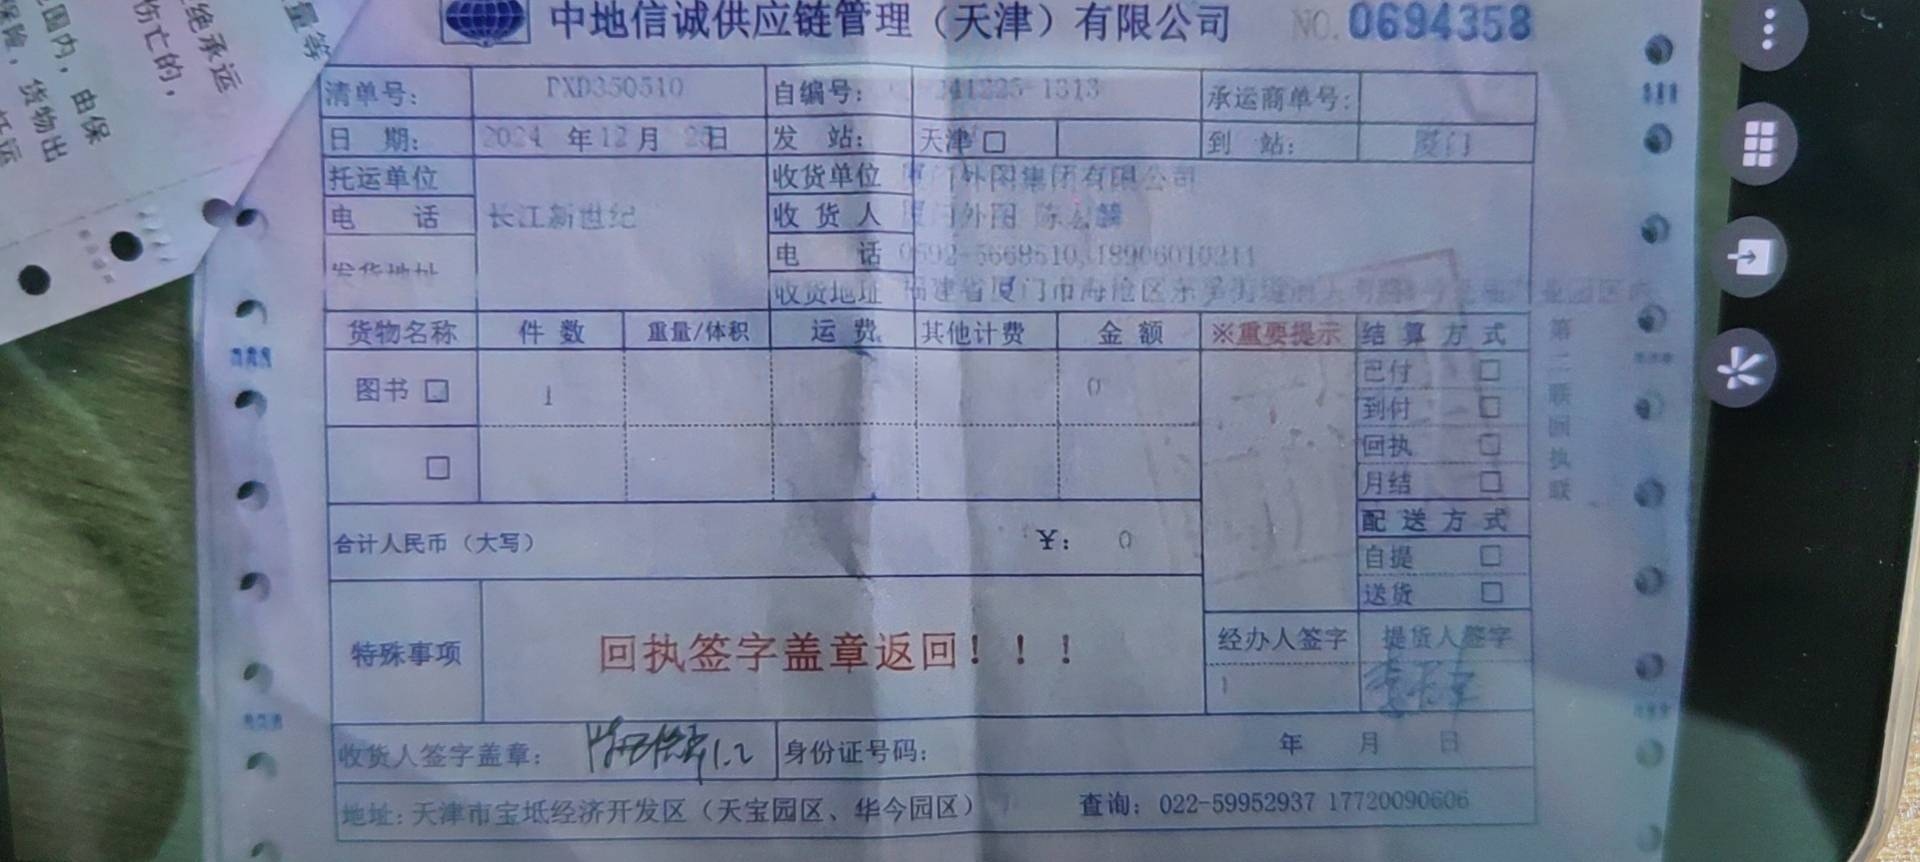 中地信诚供应链管理（天津）有限公司 NO.0694358
清单号： PXD350510 自编号： 241225-1313 承运商单号：
日 期： 2024 年 12 月 日 发 站： 天津□ 到 站： 厦门
托运单位 长江新世纪 收货单位 厦门外图集团有限公司
电 话 收 货 人 厦门外图 陈
电 话 0592-5668510 18906010211
发货地址 收货地址 福建省厦门市海沧区东孚街道
货物名称 件 数 重量/体积 运 费 其他计费 金 额 ※重要提示 结 算 方 式
图书 □ 1 0 已付 □
到付 □
回执 □
□ 月结 □
配 送 方 式
合计人民币（大写） ￥： 0 自提 □
送货 □
特殊事项 回执签字盖章返回！！！ 经办人签字 提货人签字
收货人签字盖章： 1.2 身份证号码： 年 月 日
地址：天津市宝坻经济开发区（天宝园区、华今园区） 查询：022-59952937 17720090606
第二联回执联
量等
绝承运
伤亡的，
国内，由保
保险，货物出